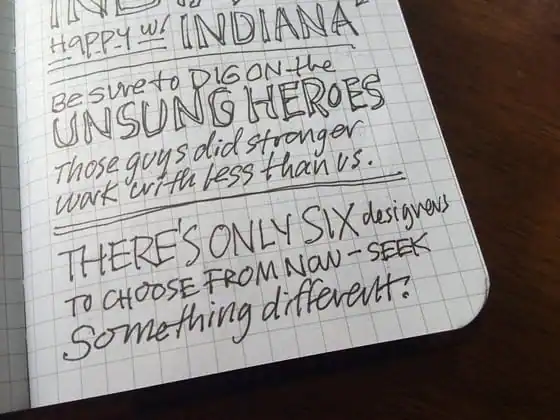 HAPPY W/ INDIANA
Be sure to DIG ON the
UNSUNG HEROES
Those guys did stronger
work with less than us.
THERE'S ONLY SIX designers
TO CHOOSE FROM NOW - SEEK
Something different?